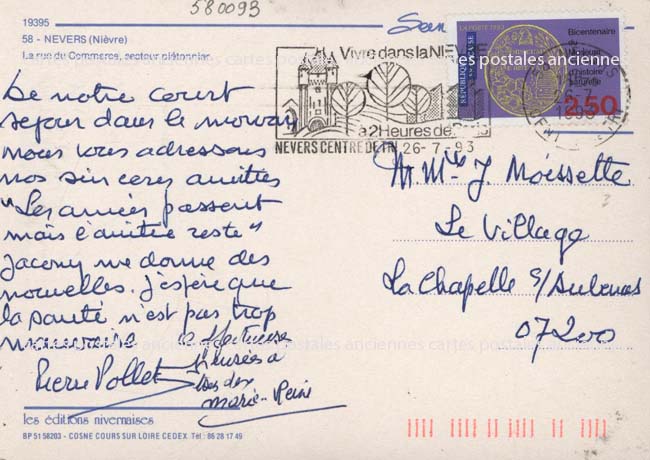 580093
19395
58 - NEVERS (Nièvre)
La rue du Commerce, secteur piétonnier.
cartes postales anciennes cartes postales anciennes
Vivre dans la NIÈVRE
à 2 Heures de
NEVERS CENTRE DE TRI 26-7-93
LA POSTE 1993
RÉPUBLIQUE FRANÇAISE
Bicentenaire
du
Muséum
d'histoire
naturelle
2,50
De notre court
sejour dans le morvan
nous vous adressons
nos sinceres amitiés
"Les années passent
mais l'amitié reste"
me donne des
nouvelles. j'espère que
la santé n'est pas trop
mauvaise
affectueuse
pensées à
tous deux
marie-Reine
Pierre Pollet
M. Mme J Moissette
Le Village
La Chapelle s/Aubenas
07200
cartes postales anciennes cartes postales anciennes
les éditions nivernaises
BP 51 58203 - COSNE COURS SUR LOIRE CEDEX Tél : 86 28 17 49